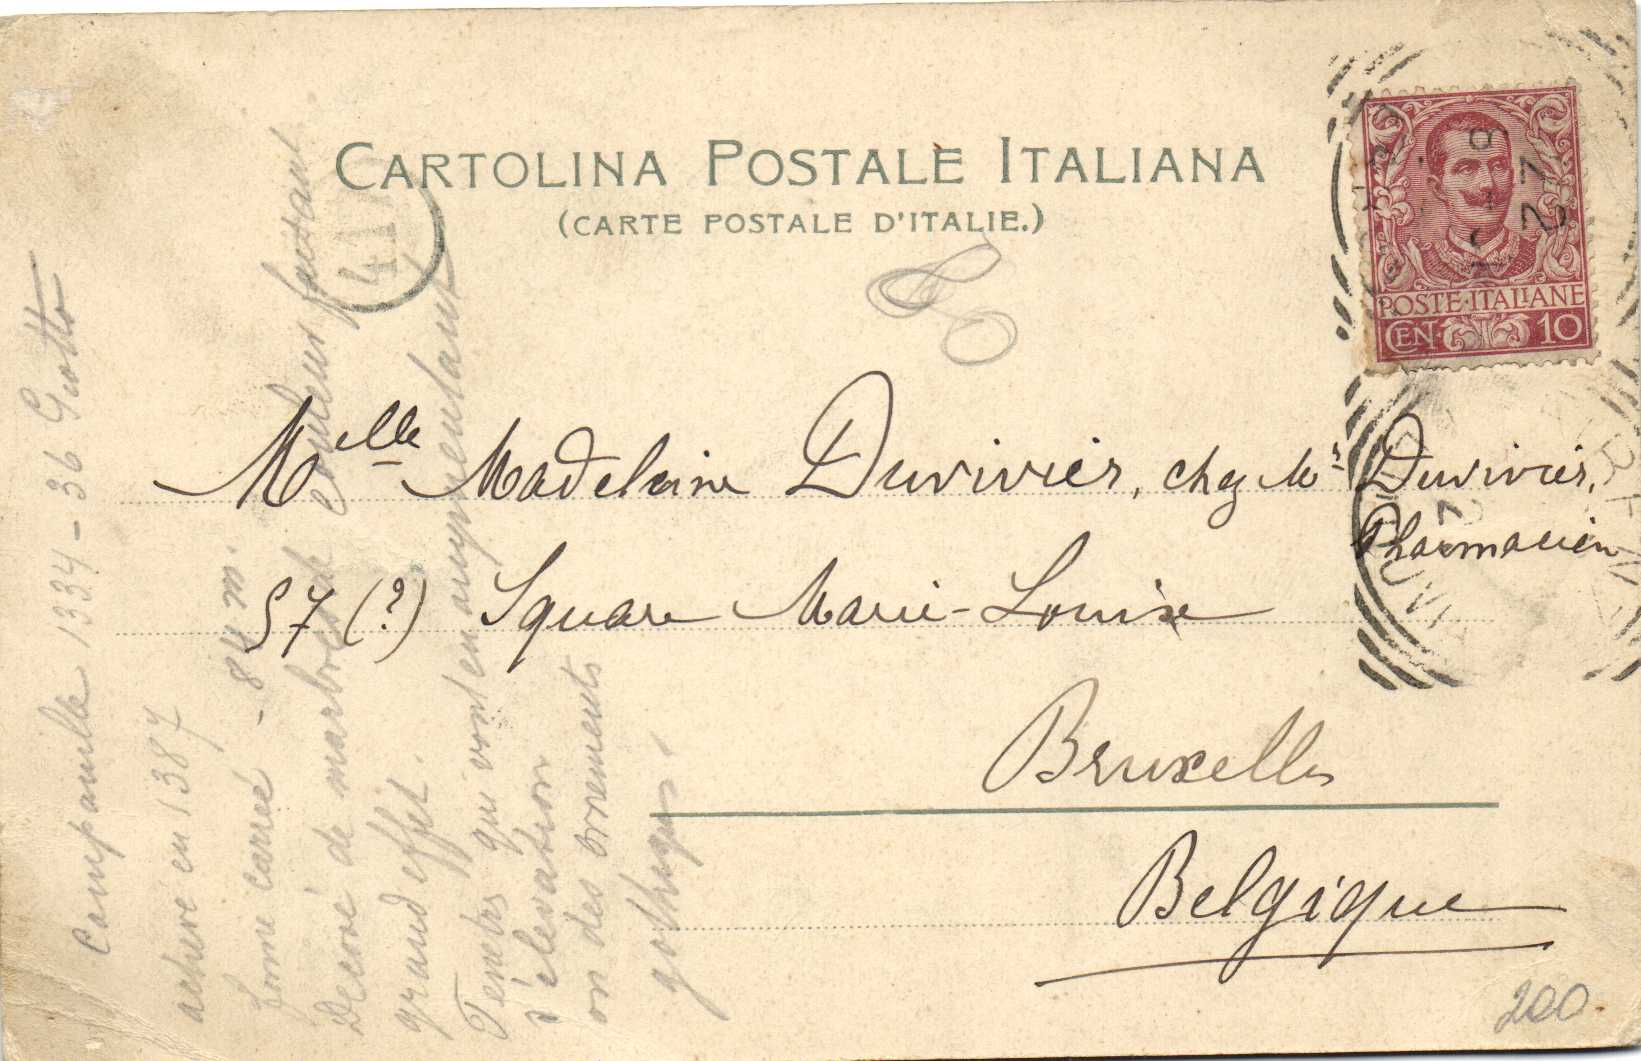 CARTOLINA POSTALE ITALIANA
(CARTE POSTALE D'ITALIE.)
POSTE·ITALIANE
CEN· 10
Melle Madeleine Duvivier, chez Mr Duvivier,
Pharmacien
57 (?) Square Marie-Louise
Bruxelles
Belgique
200.
Campanille 1334-36 Giotto
achevé en 1387
forme carrée - 84 m.
Décoré de marbre de couleurs faisant
grand effet.
Fenetres qui vont en augmentant
d'élevation
on des ornements
gothiques.
41